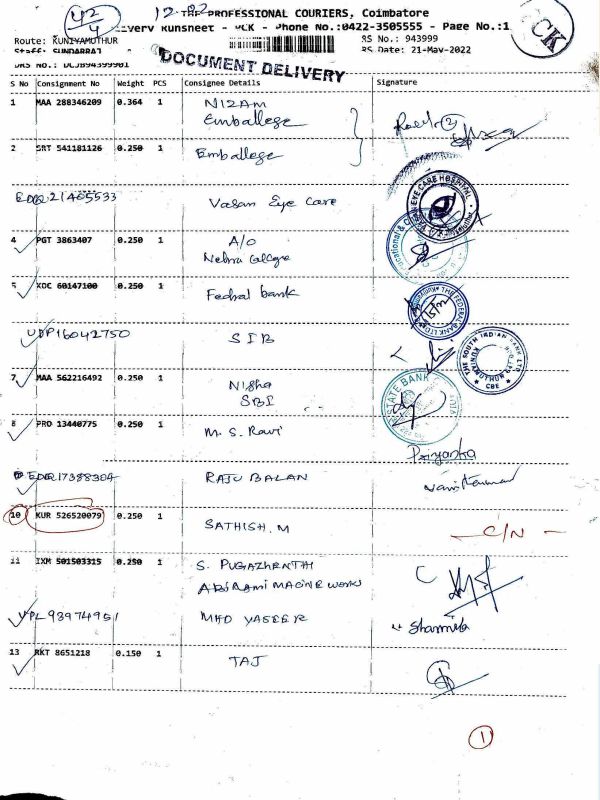 42/4 12.02 THE PROFESSIONAL COURIERS, Coimbatore
Delivery Runsheet - PCK - Phone No.:0422-3505555 - Page No.:1
PCK
Route: KUNIYAMUTHUR RS No.: 943999
Staff: SUNDARRAJ RS Date: 21-May-2022
DOCUMENT DELIVERY
DRS No.: DCJB94399901
S No Consignment No Weight PCS Consignee Details Signature
1 MAA 288346209 0.364 1 NIZAM
Emballege
2 SRT 541181126 0.250 1 Emballege
EDQ 21405533 Vasan Eye Care
EYE CARE HOSPITAL
4 PGT 3863407 0.250 1 A/O
Nehru College
5 KOC 60147100 0.250 1 Fedral bank
THE FEDERAL BANK LTD
UDP16042750 SIB
THE SOUTH INDIAN BANK LTD
CBE
7 MAA 562216492 0.250 1 Nisha
SBI
STATE BANK
8 PRD 13440775 0.250 1 M. S. Ravi
Priyanka
EDQ 17388304 RAJU BALAN
10 KUR 526520079 0.250 1 SATHISH. M
- C/N -
11 IXM 501503315 0.250 1 S. PUGAZHENTHI
ABIRAMI MACINE WORKS
VPL 98974951 MHD YASEER
Sharmila
13 RKT 8651218 0.150 1 TAJ
1